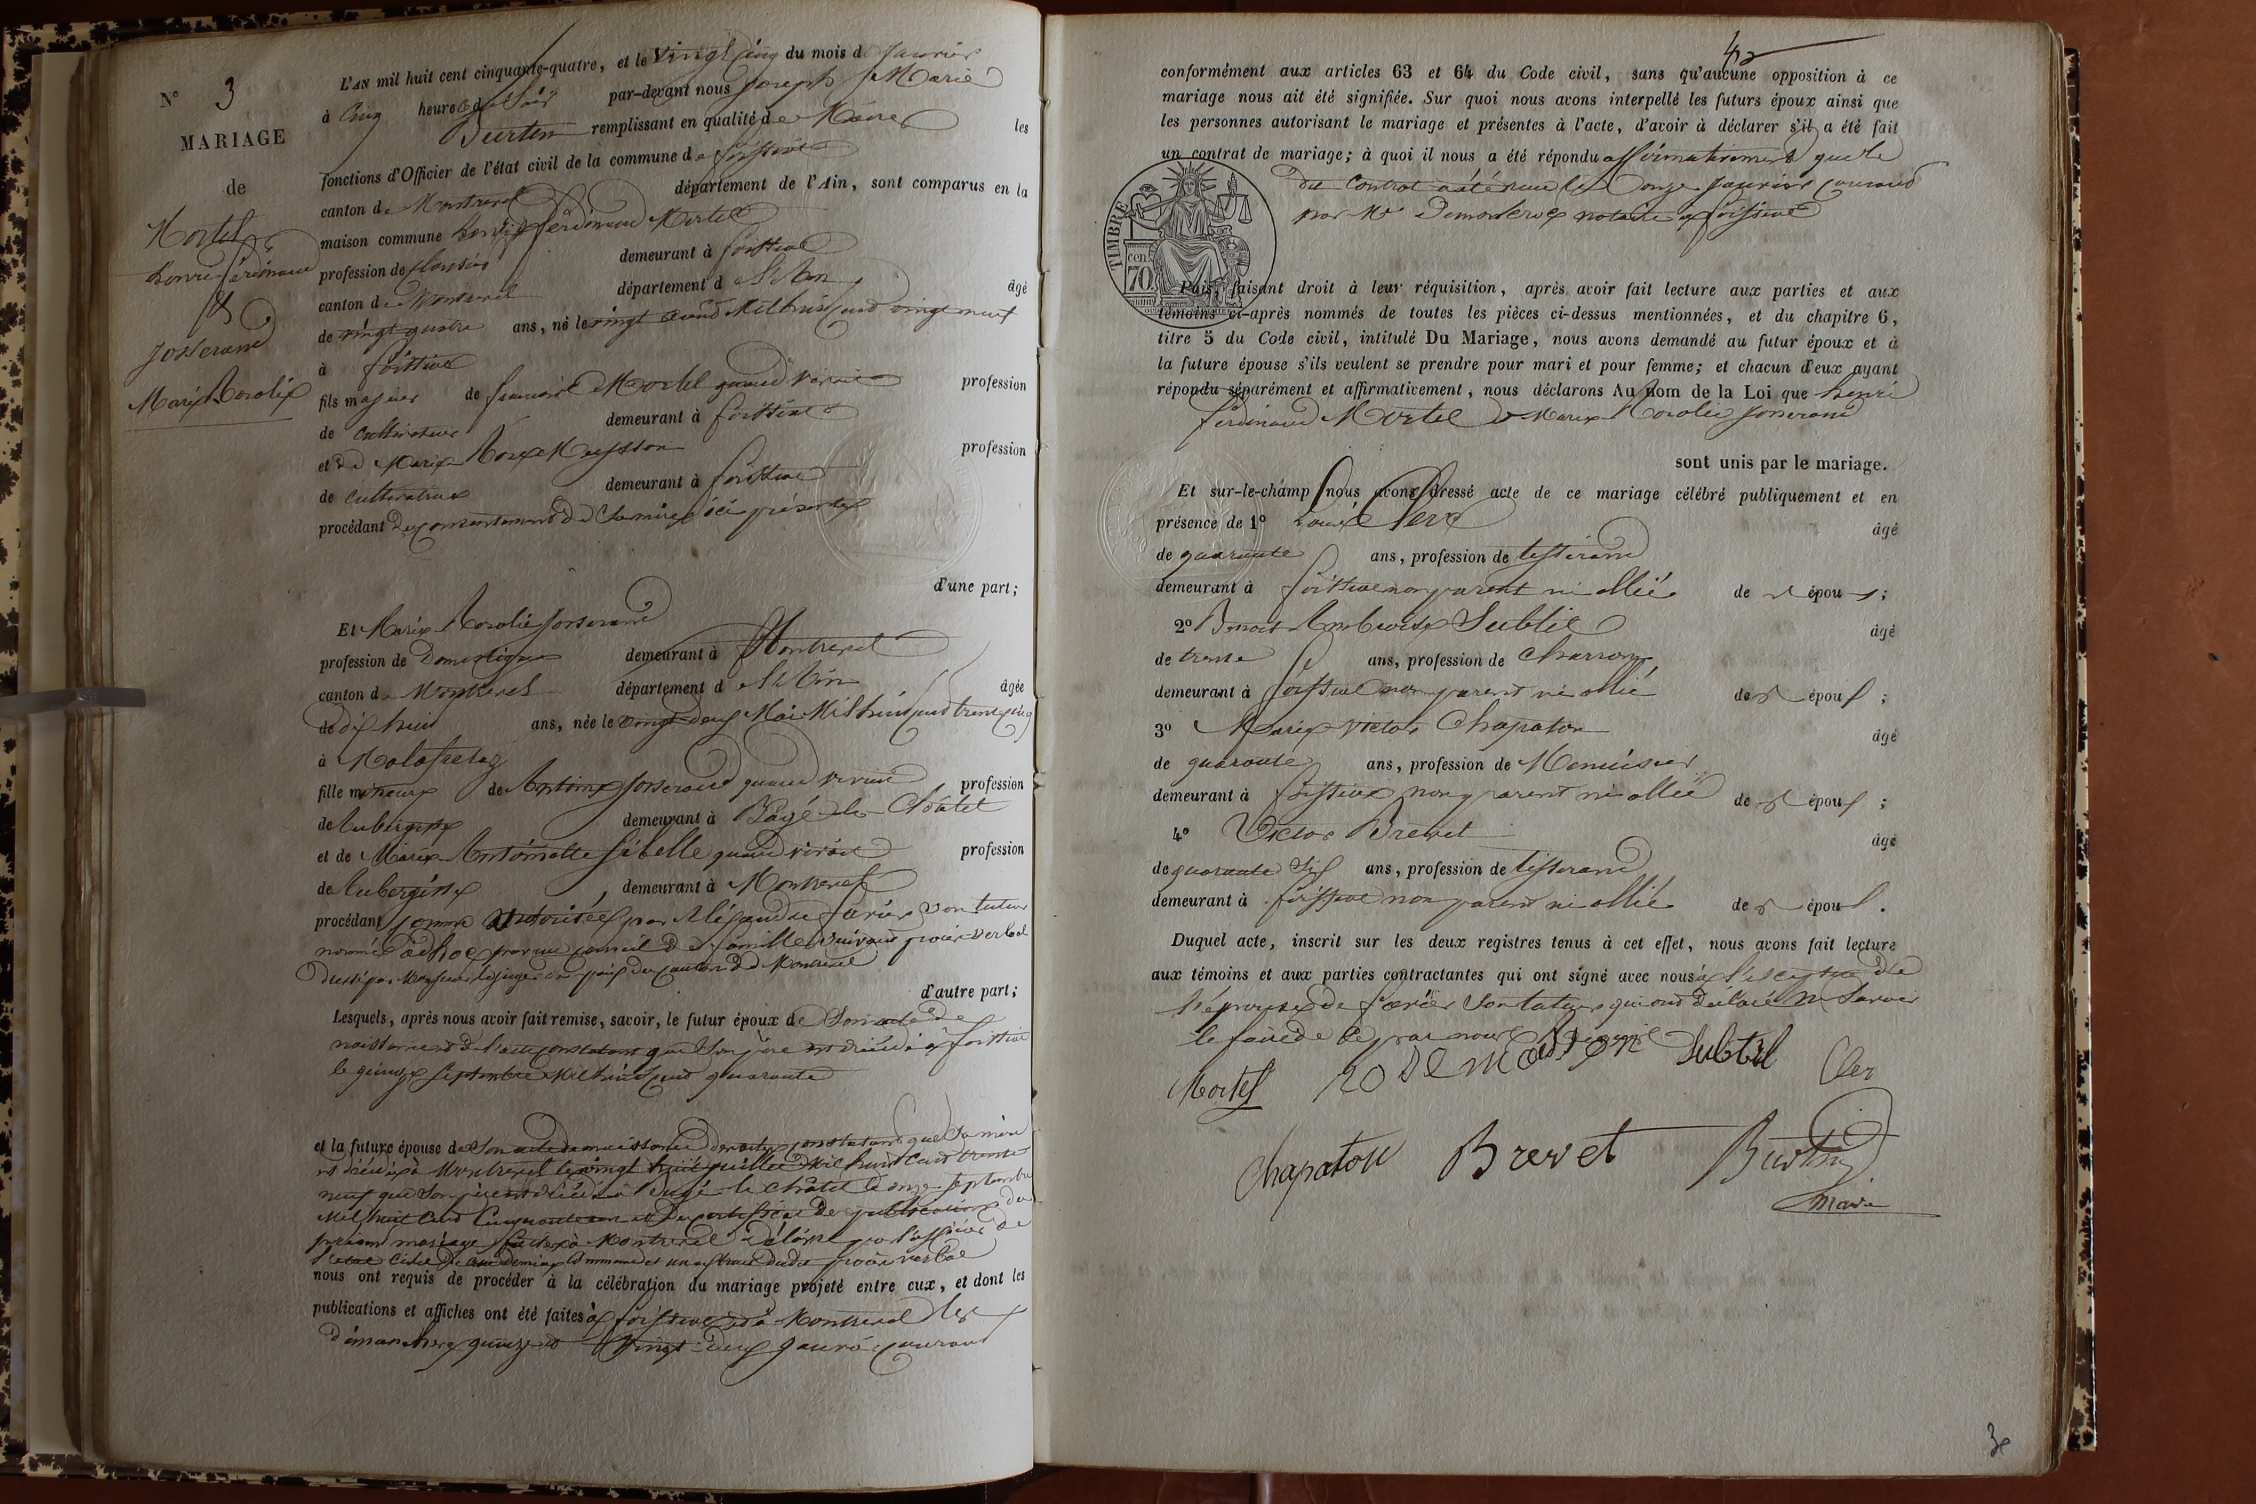 N° 3
MARIAGE
de
Mortel
henri ferdinand
&
Josserand
Marie Rosalie
L'AN mil huit cent cinquante-quatre, et le vingt cinq du mois de janvier
à cinq heures du soir par-devant nous joseph Marie
Burtin remplissant en qualité de Maire les
fonctions d'Officier de l'état civil de la commune de foissiat
canton de Montrevel département de l'Ain, sont comparus en la
maison commune henri ferdinand Mortel
profession de demeurant à foissiat
canton de Montrevel département de l'Ain âgé
de vingt quatre ans, né le vingt Mil huit cent vingt neuf
à foissiat
fils majeur de françois Mortel quand vivait profession
de cultivateur demeurant à foissiat
et de Marie profession
de cultivatrice demeurant à foissiat
procédant du consentement de sa mère ici présente
d'une part;
Et Marie Rosalie Josserand
profession de Domestique demeurant à Montrevel
canton de Montrevel département de l'Ain âgée
de dix huit ans, née le vingt deux Mai Mil huit cent trente cinq
à Malafretaz
fille mineure de Antoine Josserand quand vivait profession
de aubergiste demeurant à Bâgé le Châtel
et de Marie Antoinette Sibelle quand vivait profession
de aubergiste demeurant à Montrevel
procédant comme autorisée par Alexandre son tuteur
nommé ad hoc par un conseil de famille suivant procès verbal
dressé par Monsieur le juge de paix du canton de Montrevel
d'autre part;
Lesquels, après nous avoir fait remise, savoir, le futur époux de Son acte de
naissance et de l'acte constatant que Son père est décédé à foissiat
le quinze septembre Mil huit cent quarante
et la future épouse de Son acte de naissance de constatant que Sa mère
est décédée à Montrevel le vingt huit juillet Mil huit Cent trente
neuf que Son père est décédé à Bâgé le Châtel le onze Septembre
Mil huit Cent Cinquante un et du certificat de publications du
présent mariage faites à Montrevel délivré par l'officier de
l'état Civil de cette dernière Commune et un extrait dudit procès verbal
nous ont requis de procéder à la célébration du mariage projeté entre eux, et dont les
publications et affiches ont été faites à foissiat et à Montrevel les
dimanches quinze et Vingt deux janvier courant
conformément aux articles 63 et 64 du Code civil, sans qu'aucune opposition à ce
mariage nous ait été signifiée. Sur quoi nous avons interpellé les futurs époux ainsi que
les personnes autorisant le mariage et présentes à l'acte, d'avoir à déclarer s'il a été fait
un contrat de mariage; à quoi il nous a été répondu affirmativement que le
dit Contrat a été reçu le onze janvier courant
par Me notaire à foissiat
TIMBRE
cen
70.
Puis, faisant droit à leur réquisition, après avoir fait lecture aux parties et aux
témoins ci-après nommés de toutes les pièces ci-dessus mentionnées, et du chapitre 6,
titre 5 du Code civil, intitulé Du Mariage, nous avons demandé au futur époux et à
la future épouse s'ils veulent se prendre pour mari et pour femme; et chacun d'eux ayant
répondu séparément et affirmativement, nous déclarons Au nom de la Loi que henri
ferdinand Mortel & Marie Rosalie Josserand
sont unis par le mariage.
Et sur-le-champ nous avons dressé acte de ce mariage célébré publiquement et en
présence de 1° Louis Clerc âgé
de quarante ans, profession de tisserand
demeurant à foissiat non parent ni allié de s époux;
2° Benoit Ambroise Subtil âgé
de trente ans, profession de charron
demeurant à foissiat non parent ni allié des époux;
3° Marie Victor Chapaton âgé
de quarante ans, profession de Menuisier
demeurant à foissiat non parent ni allié des époux;
4° Victor Brevet âgé
de quarante six ans, profession de tisserand
demeurant à foissiat non parent ni allié des époux.
Duquel acte, inscrit sur les deux registres tenus à cet effet, nous avons fait lecture
aux témoins et aux parties contractantes qui ont signé avec nous à l'exception de
l'épouse de son tuteur qui ont déclaré ne Savoir
le faire de ce par nous requis
Mortel Subtil Cler
Chapaton Brevet Burtin
maire
3